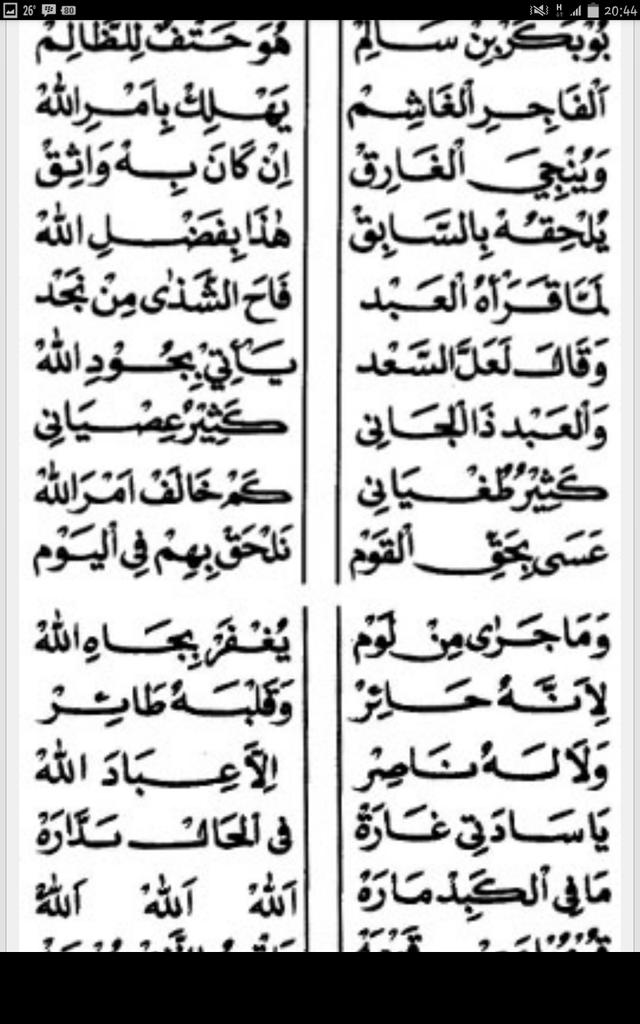 26° 80 H 20:44
بُوْبَكَرْ بِنْ سَالِمْ هُوَ حَتْفٌ لِلظَّالِمْ
اَلْفَاجِرِ الْغَاشِمْ يَهْلِكْ بِاَمْرِ اللهْ
وَيُنْجِيَ الْغَارِقْ اِنْ كَانَ بِهْ وَاثِقْ
يُلْحِقُهُ بِالسَّابِقْ هٰذَا بِفَضْلِ اللهْ
لَمَّا قَرَأَهُ الْعَبْد فَاحَ الشَّذٰى مِنْ نَجْد
وَقَالَ لَعَلَّ السَّعْد يَأْتِيْ بِجُوْدِ اللهْ
وَالْعَبْد ذَا الْجَانِى كَثِيْرُ عِصْيَانِى
كَثِيْرُ طُغْيَانِى كَمْ خَالَفْ اَمْرَ اللهْ
عَسَى بِحَقِّ الْقَوْم نَلْحَقْ بِهِمْ فِى الْيَوْم
وَمَا جَرٰى مِنْ لَوْم يُغْفَرْ بِجَاهِ اللهْ
لِاَنَّهُ حَائِرْ وَقَلْبُهُ طَائِرْ
وَلَا لَهُ نَاصِرْ اِلَّا عِبَادَ اللهْ
يَا سَادَتِى غَارَةْ فِى الْحَالْ بَدَّارَةْ
مَا فِى الْكَبِدْ مَارَهْ اَللهْ اَللهْ اَللهْ